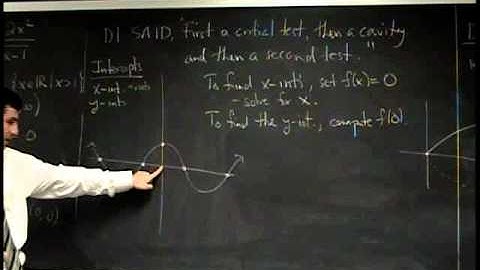 DI SAID, "First a critical test, then a cavity
and then a second test."
Intercepts
x-int
y-ints
To find x-int's, set f(x)=0
- solve for x.
To find the y-int., compute f(0).
2x²
x-1
{x∈ℝ| x>1